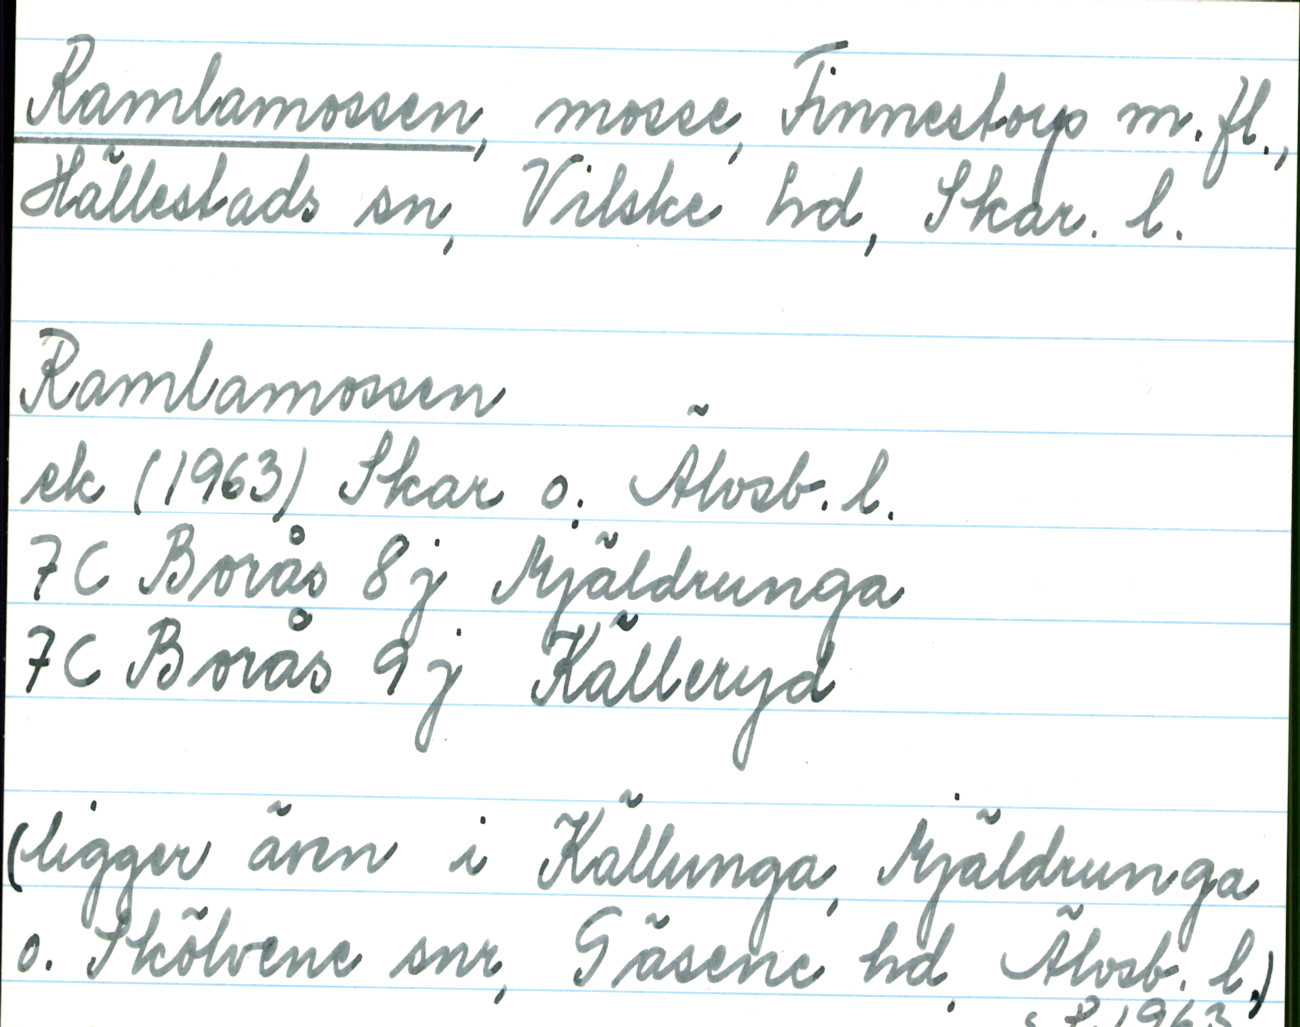 Ramlamossen, mosse, Finnestorp m. fl.,
Hällestads sn, Vilske hd, Skar. l.
Ramlamossen
ek (1963) Skar o. Älvsb. l.
7C Borås 8j Mjäldrunga
7C Borås 9j Källeryd
(ligger även i Källunga, Mjäldrunga
o. Skölvene snr, Gäsene hd, Älvsb. l.)
1963